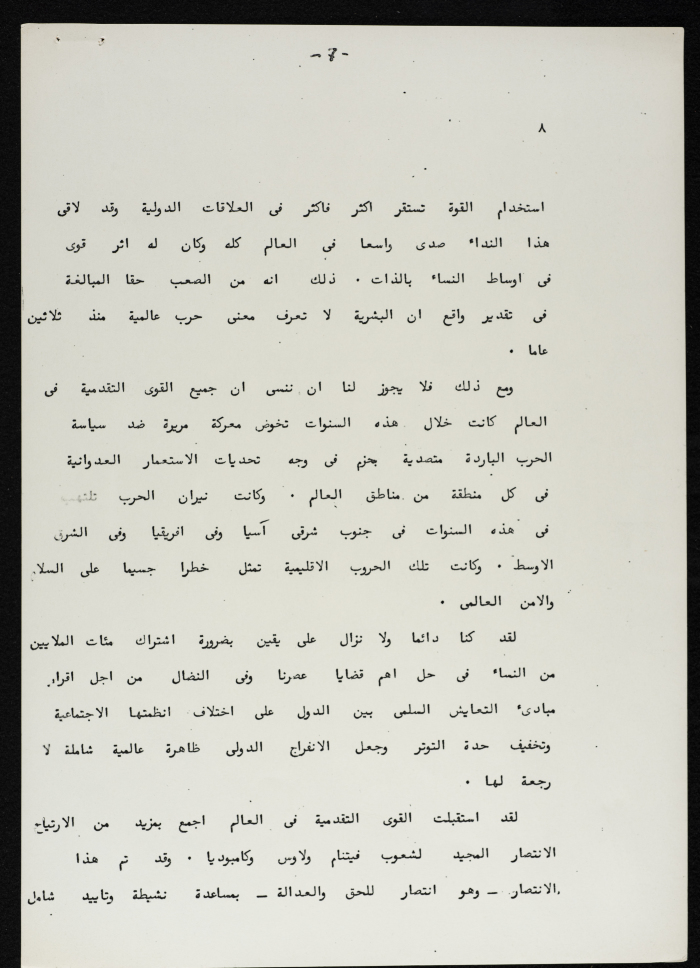 -8-
٨
استخدام القوة تستقر اكثر فاكثر فى العلاقات الدولية وقد لاقى
هذا النداء صدى واسعا فى العالم كله وكان له اثر قوى
فى اوساط النساء بالذات ٠ ذلك انه من الصعب حقا المبالغة
فى تقدير واقع ان البشرية لا تعرف معنى حرب عالمية منذ ثلاثين
عاما ٠
ومع ذلك فلا يجوز لنا ان ننسى ان جميع القوى التقدمية فى
العالم كانت خلال هذه السنوات تخوض معركة مريرة ضد سياسة
الحرب الباردة متصدية بحزم فى وجه تحديات الاستعمار العدوانية
فى كل منطقة من مناطق العالم ٠ وكانت نيران الحرب تلتهب
فى هذه السنوات فى جنوب شرقى آسيا وفى افريقيا وفى الشرق
الاوسط ٠ وكانت تلك الحروب الاقليمية تمثل خطرا جسيما على السلام
والامن العالمى ٠
لقد كنا دائما ولا نزال على يقين بضرورة اشتراك مئات الملايين
من النساء فى حل اهم قضايا عصرنا وفى النضال من اجل اقرار
مبادىء التعايش السلمى بين الدول على اختلاف انظمتها الاجتماعية
وتخفيف حدة التوتر وجعل الانفراج الدولى ظاهرة عالمية شاملة لا
رجعة لها ٠
لقد استقبلت القوى التقدمية فى العالم اجمع بمزيد من الارتياح
الانتصار المجيد لشعوب فيتنام ولاوس وكامبوديا ٠ وقد تم هذا
الانتصار — وهو انتصار للحق والعدالة — بمساعدة نشيطة وتاييد شامل